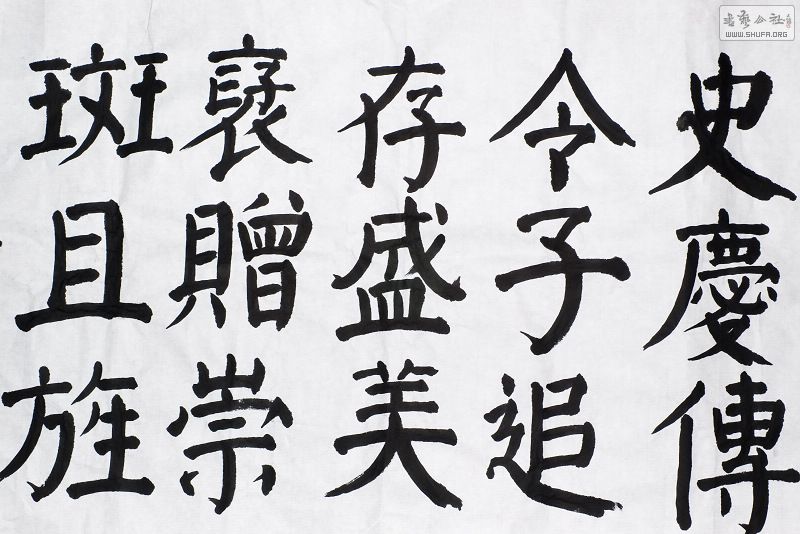 史慶傳
令子追
存盛美
褒贈崇
斑且旌
書藝公社
WWW.SHUFA.ORG